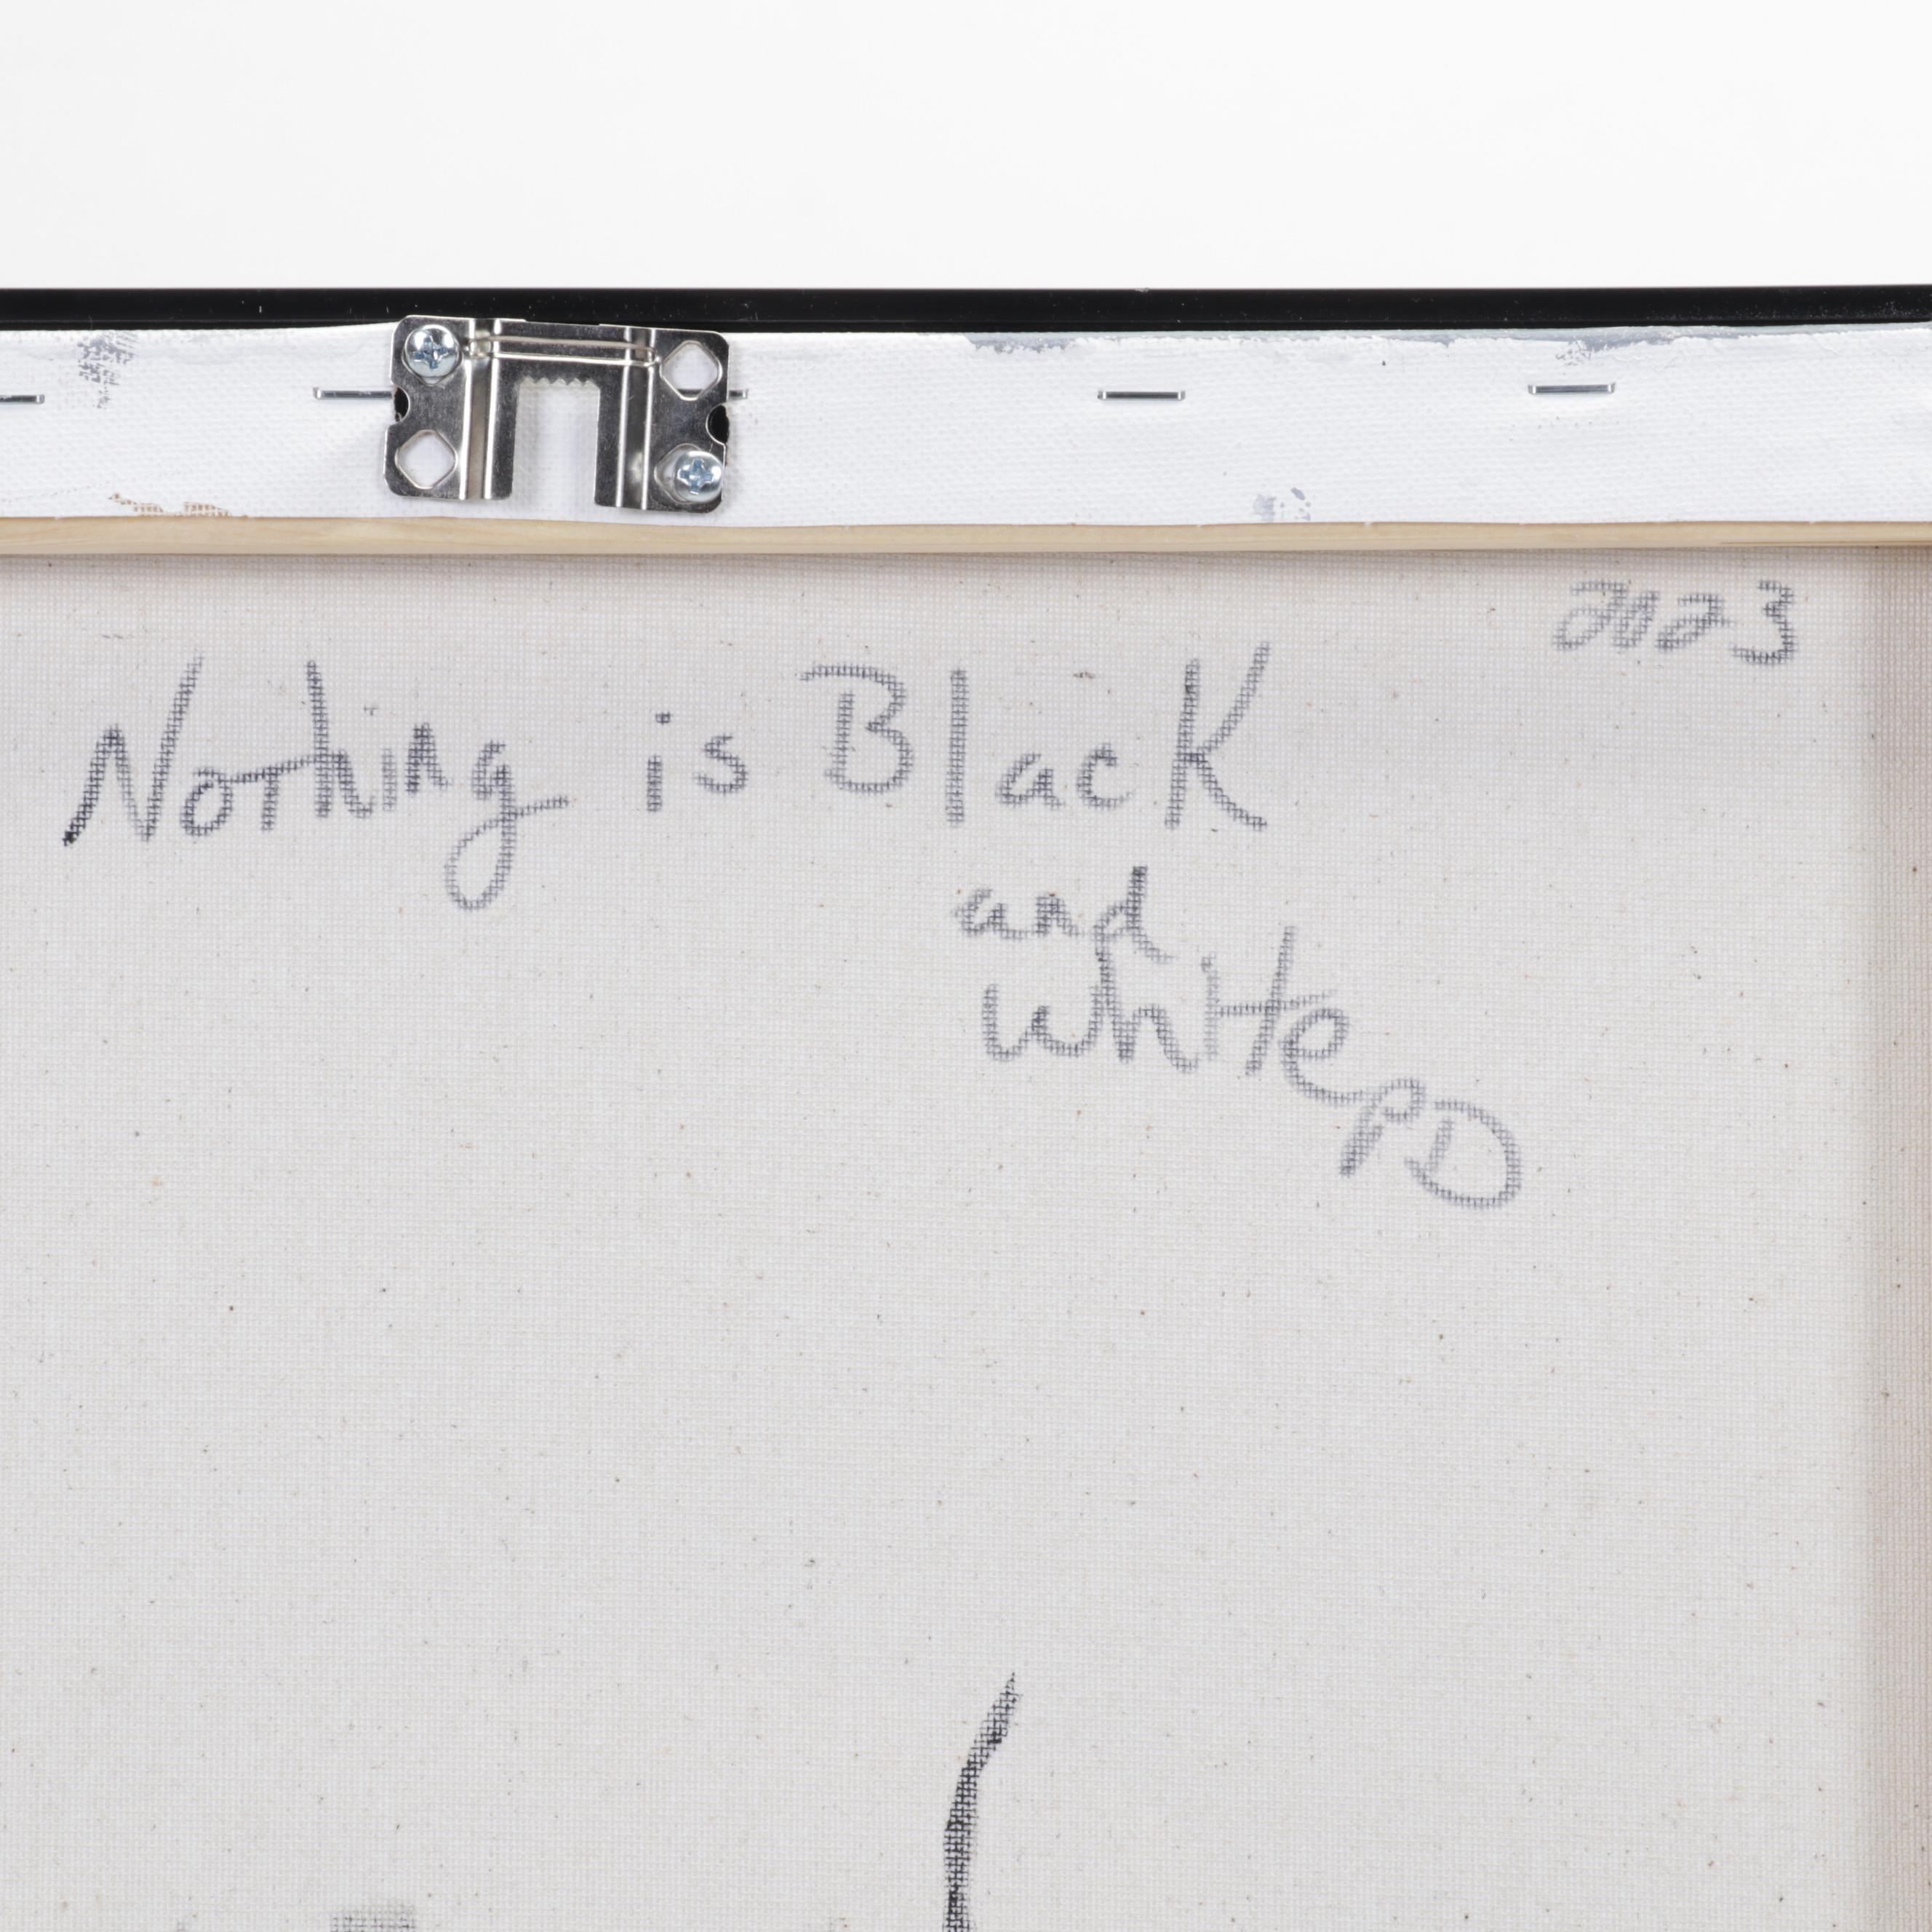 2023
Nothing is Black
and
white
PD